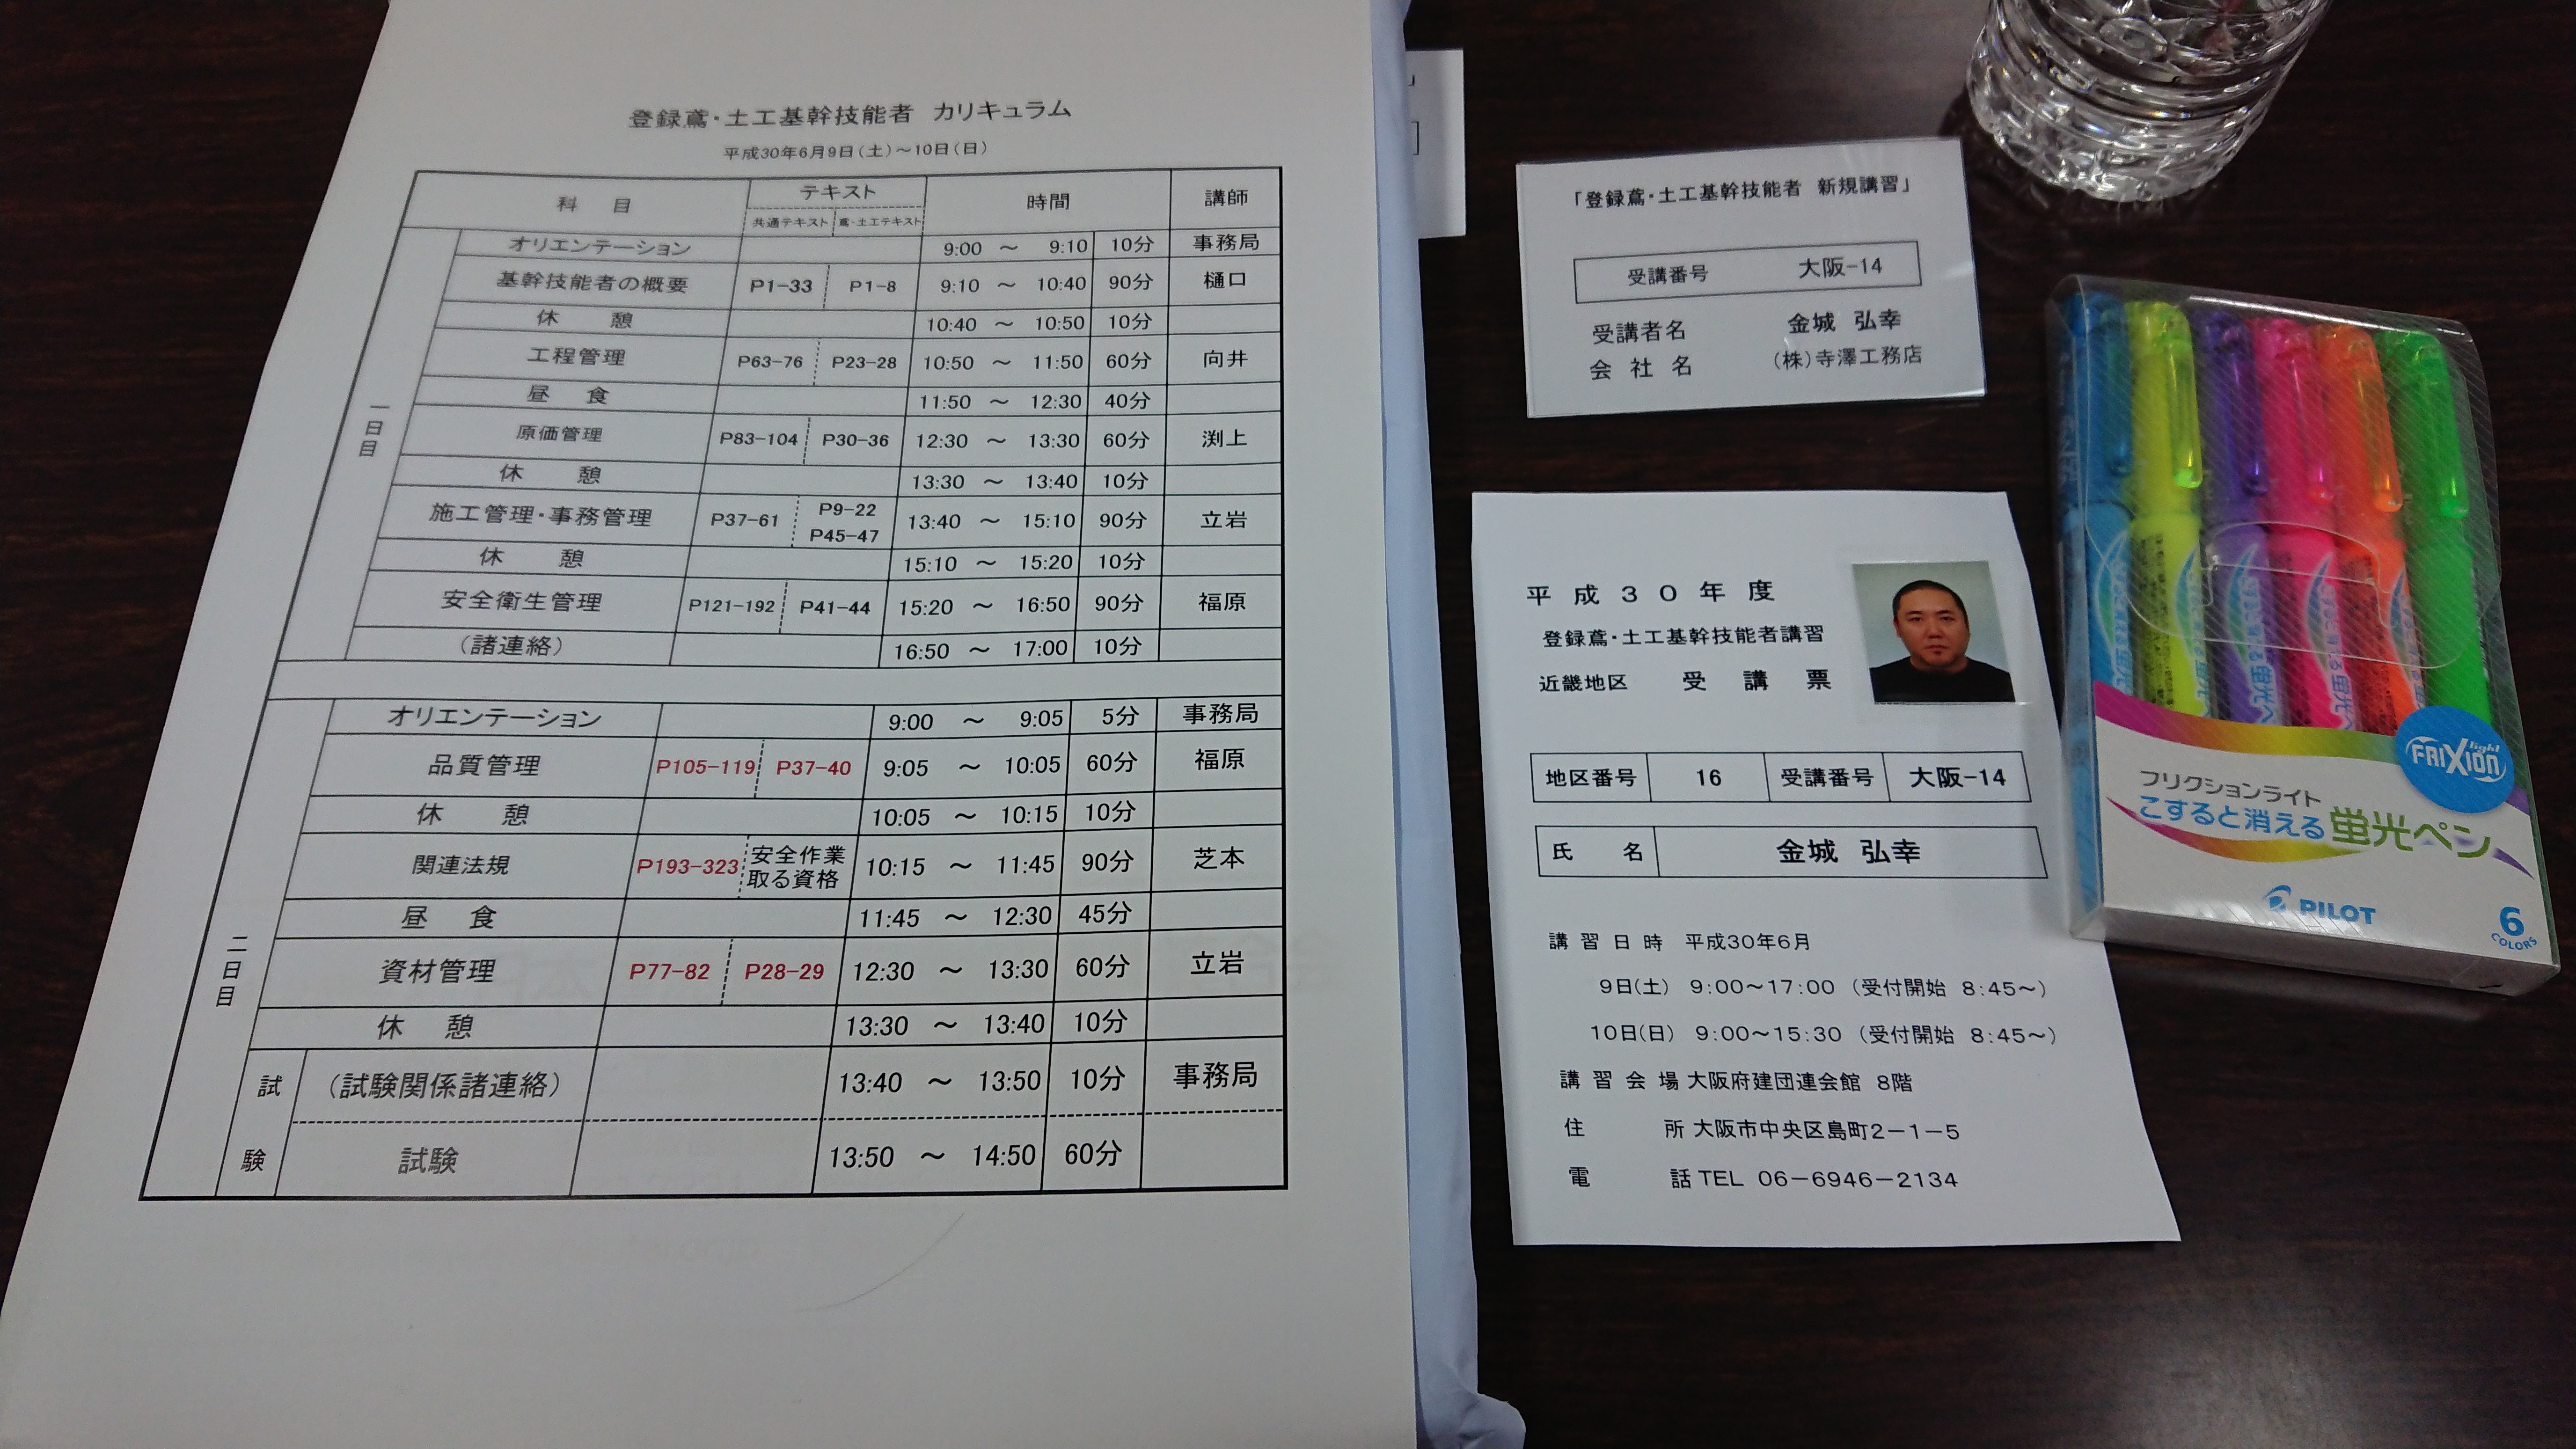 登録鳶・土工基幹技能者 カリキュラム
平成30年6月9日(土)～10日(日)
科 目 テキスト 時間 講師
共通テキスト 鳶・土工テキスト
一日目
オリエンテーション 9:00 ～ 9:10 10分 事務局
基幹技能者の概要 P1-33 P1-8 9:10 ～ 10:40 90分 樋口
休 憩 10:40 ～ 10:50 10分
工程管理 P63-76 P23-28 10:50 ～ 11:50 60分 向井
昼 食 11:50 ～ 12:30 40分
原価管理 P83-104 P30-36 12:30 ～ 13:30 60分 渕上
休 憩 13:30 ～ 13:40 10分
施工管理・事務管理 P37-61 P9-22 P45-47 13:40 ～ 15:10 90分 立岩
休 憩 15:10 ～ 15:20 10分
安全衛生管理 P121-192 P41-44 15:20 ～ 16:50 90分 福原
(諸連絡) 16:50 ～ 17:00 10分
二日目
オリエンテーション 9:00 ～ 9:05 5分 事務局
品質管理 P105-119 P37-40 9:05 ～ 10:05 60分 福原
休 憩 10:05 ～ 10:15 10分
関連法規 P193-323 安全作業取る資格 10:15 ～ 11:45 90分 芝本
昼 食 11:45 ～ 12:30 45分
資材管理 P77-82 P28-29 12:30 ～ 13:30 60分 立岩
休 憩 13:30 ～ 13:40 10分
試験
(試験関係諸連絡) 13:40 ～ 13:50 10分 事務局
試験 13:50 ～ 14:50 60分
「登録鳶・土工基幹技能者 新規講習」
受講番号 大阪-14
受講者名 金城 弘幸
会社名 (株)寺澤工務店
平成30年度
登録鳶・土工基幹技能者講習
近畿地区 受講票
地区番号 16 受講番号 大阪-14
氏 名 金城 弘幸
講習日時 平成30年6月
9日(土) 9:00～17:00 (受付開始 8:45～)
10日(日) 9:00～15:30 (受付開始 8:45～)
講習会場 大阪府建団連会館 8階
住 所 大阪市中央区島町2-1-5
電 話 TEL 06-6946-2134
FRIXION light
フリクションライト
こすると消える蛍光ペン
PILOT
6 COLORS